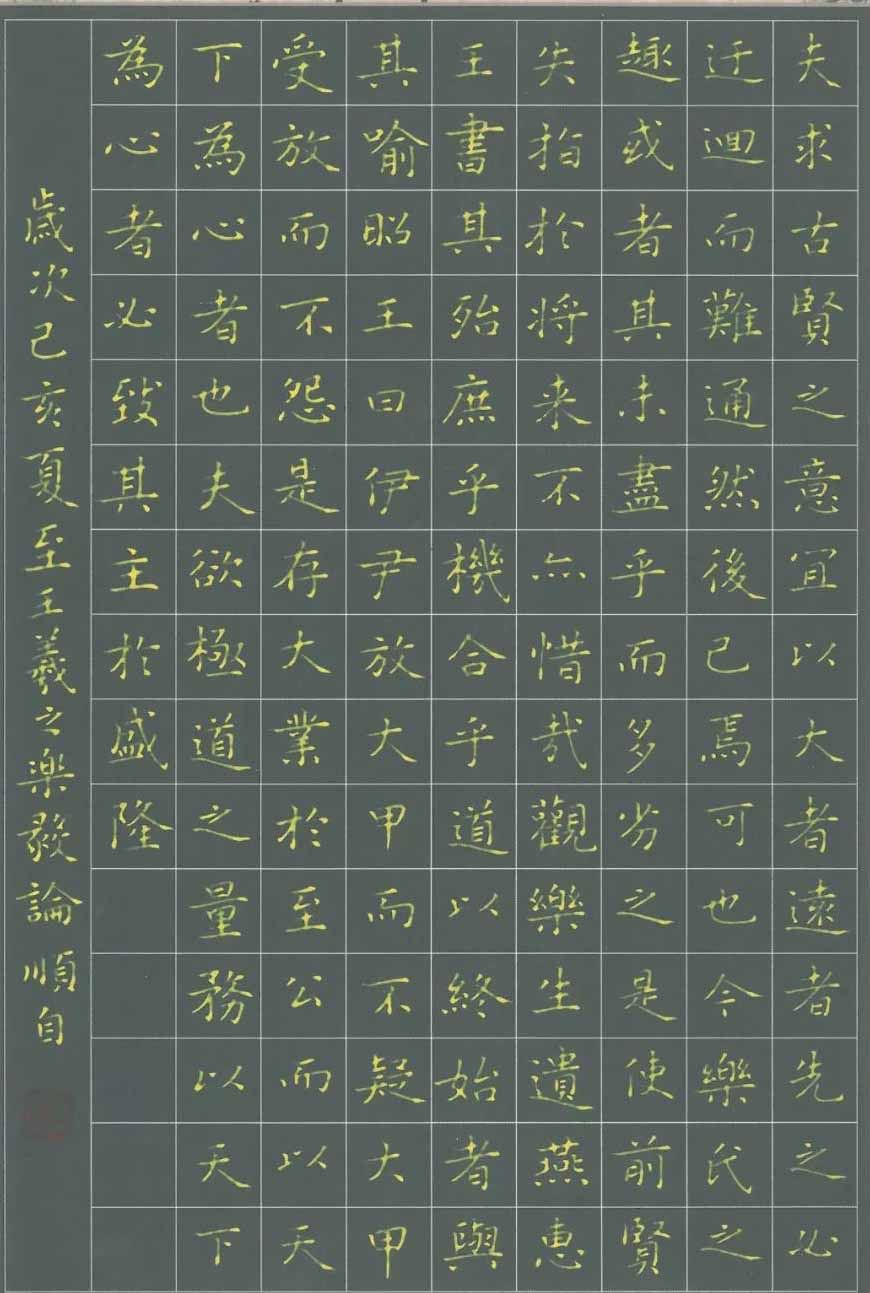 夫求古賢之意宜以大者遠者先之必
迂迴而難通然後已焉可也今樂氏之
趣或者其未盡乎而多劣之是使前賢
失指於将来不亦惜哉觀樂生遺燕惠
王書其殆庶乎機合乎道以終始者與
其喻昭王曰伊尹放大甲而不疑大甲
受放而不怨是存大業於至公而以天
下為心者也夫欲極道之量務以天下
為心者必致其主於盛隆
歲次己亥夏至王羲之樂毅論順自